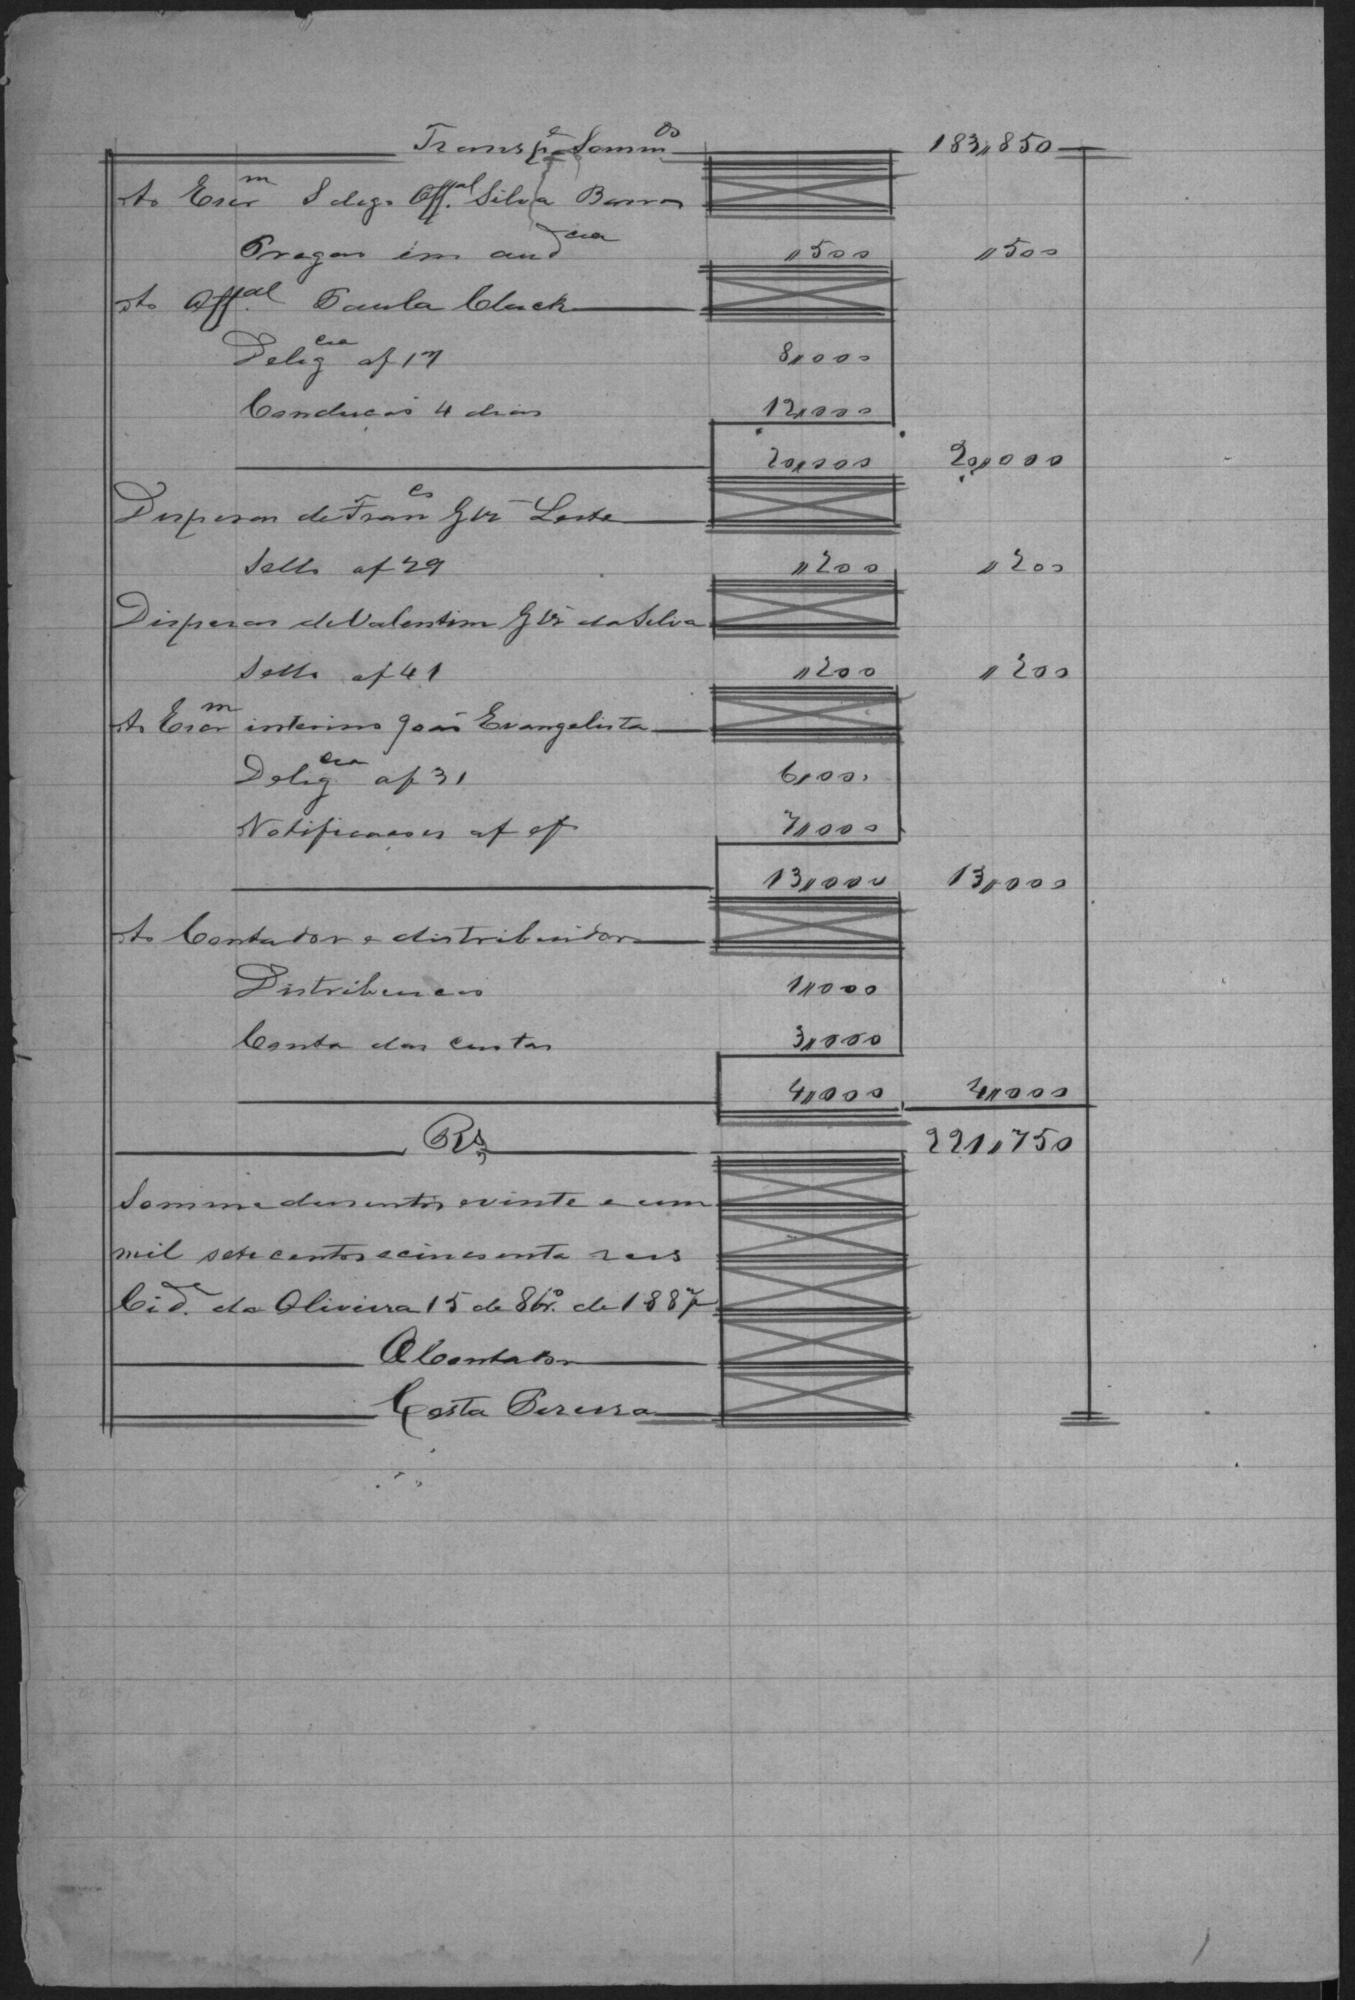 Transp.e Somm.os 183,,850
Ao Escr.m S diogo Off.al Silva Barros
Pregão em aud.cia ,,500 ,,500
Ao Off.al Paula Clack
Delig.cia af 17 8,,000
Conducão 4 dias 12,,000
20,,000 20,,000
Despesas de Fran.co Glz Leste
Sello af 29 ,,200 ,,200
Dispesas de Valentim Glz da Silva
Sello af 41 ,,200 ,,200
Ao Escr.m interino João Evangelista
Delig.cia af 31 6,,000
Notificacoes af 7,,000
13,,000 13,,000
Ao Contador e distribuidor
Distribuicão 1,,000
Conta das custas 3,,000
4,,000 4,,000
Rs 221,,750
Somma dusentos e vinte e um
mil sete centos e cincoenta reis
Cid.e da Oliveira 15 de 8br.o de 1887
O Contador
Costa Pereira